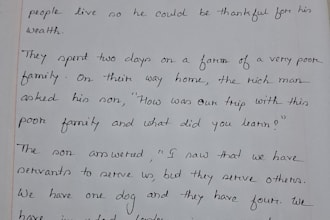 people live so he could be thankful for his
wealth.
They spent two days on a farm of a very poor
family. On their way home, the rich man
asked his son, "How was our trip with this
poor family and what did you learn?"
The son answered, "I saw that we have
servants to serve us, but they serve others.
We have one dog and they have four. We
have